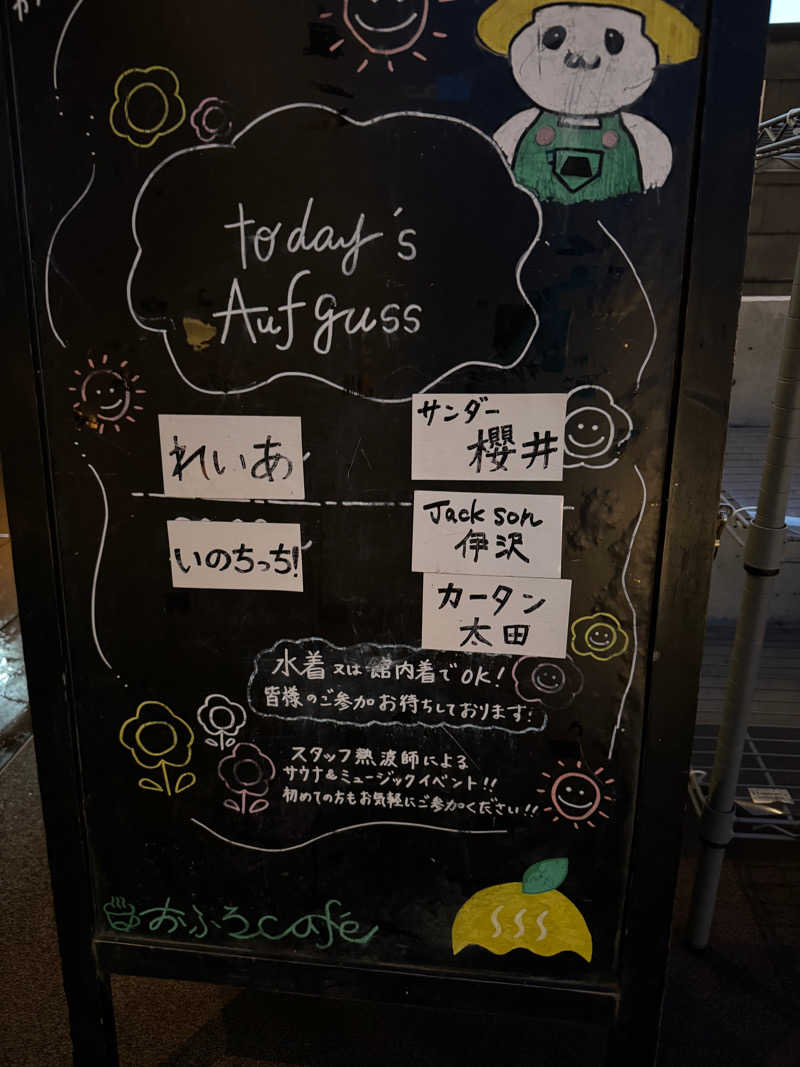 today's
Aufguss
れいあ
いのちっち!
サンダー
櫻井
Jackson
伊沢
カータン
太田
水着又は館内着でOK!
皆様のご参加お待ちしております:
スタッフ熱波師による
サウナ&ミュージックイベント!!
初めての方もお気軽にご参加ください!!
おふろcafé